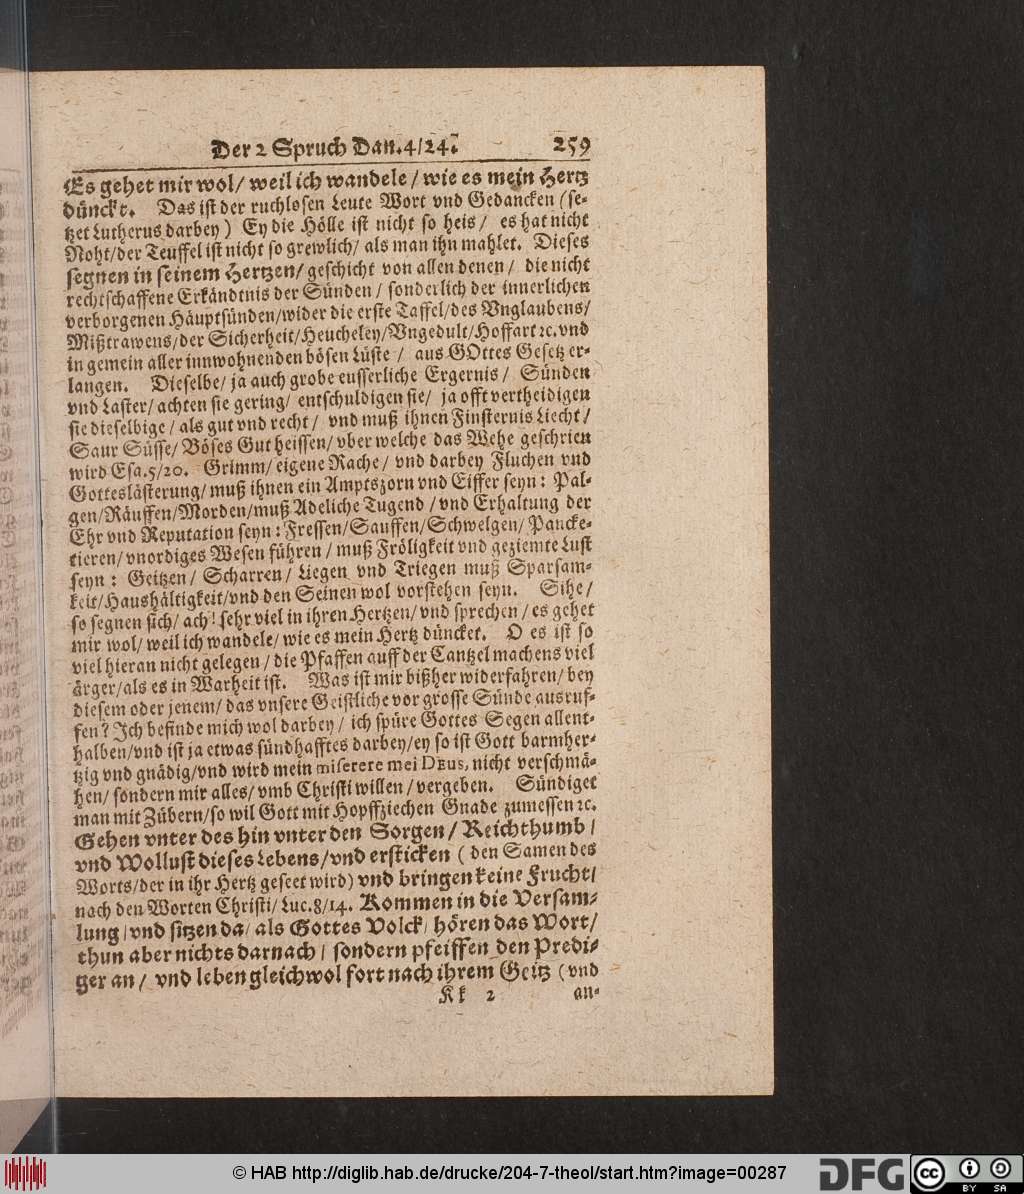 Der 2 Spruch Dan. 4/24. 259
Es gehet mir wol/ weil ich wandele/ wie es mein Hertz
dünckt. Das ist der ruchlosen Leute Wort vnd Gedancken (se-
tzet Lutherus darbey) Ey die Hölle ist nicht so heis/ es hat nicht
Noht/der Teuffel ist nicht so grewlich/ als man ihn mahlet. Dieses
segnen in seinem Hertzen/ geschicht von allen denen/ die nicht
rechtschaffene Erkändtnis der Sünden/ sonderlich der innerlichen
verborgenen Häuptsünden/wider die erste Taffel/des Vnglaubens/
Mißtrawens/der Sicherheit/Heucheley/Vngedult/Hoffart ꝛc. vnd
in gemein aller innwohnenden bösen Lüste/ aus GOttes Gesetz er-
langen. Dieselbe/ ja auch grobe eusserliche Ergernis/ Sünden
vnd Laster/ achten sie gering/ entschuldigen sie/ ja offt vertheidigen
sie dieselbige/ als gut vnd recht/ vnd muß ihnen Finsternis Liecht/
Saur Süsse/ Böses Gut heissen/ vber welche das Wehe geschrien
wird Esa. 5/20. Grimm/ eigene Rache/ vnd darbey Fluchen vnd
Gotteslästerung/ muß ihnen ein Amptszorn vnd Eiffer seyn: Pal-
gen/Räuffen/Morden/muß Adeliche Tugend/ vnd Erhaltung der
Ehr vnd Reputation seyn: Fressen/Sauffen/Schwelgen/ Pancke-
tieren/ vnordiges Wesen führen/ muß Fröligkeit vnd geziemte Lust
seyn: Geitzen/ Scharren/ Liegen vnd Triegen muß Sparsam-
keit/Haushältigkeit/vnd den Seinen wol vorstehen seyn. Sihe/
so segnen sich/ ach! sehr viel in ihren Hertzen/ vnd sprechen/ es gehet
mir wol/ weil ich wandele/ wie es mein Hertz düncket. O es ist so
viel hieran nicht gelegen/ die Pfaffen auff der Cantzel machens viel
ärger/als es in Warheit ist. Was ist mir bißher widerfahren/ bey
diesem oder jenem/ das vnsere Geistliche vor grosse Sünde ausruf-
fen? Ich befinde mich wol darbey/ ich spüre Gottes Segen allent-
halben/vnd ist ja etwas sündhafftes darbey/ey so ist Gott barmher-
tzig vnd gnädig/vnd wird mein miserere mei Deus, nicht verschmä-
hen/ sondern mir alles/ vmb Christi willen/ vergeben. Sündiget
man mit Zübern/so wil Gott mit Hopffziechen Gnade zumessen ꝛc.
Gehen vnter des hin vnter den Sorgen/ Reichthumb/
vnd Wollust dieses Lebens/vnd ersticken (den Samen des
Worts/der in ihr Hertz geseet wird) vnd bringen keine Frucht/
nach den Worten Christi/ Luc. 8/14. Kommen in die Versam-
lung/vnd sitzen da/ als Gottes Volck/ hören das Wort/
thun aber nichts darnach/ sondern pfeiffen den Predi-
ger an/ vnd leben gleichwol fort nach ihrem Geitz (vnd
Kk 2 an-
© HAB http://diglib.hab.de/drucke/204-7-theol/start.htm?image=00287
DFG
cc BY SA